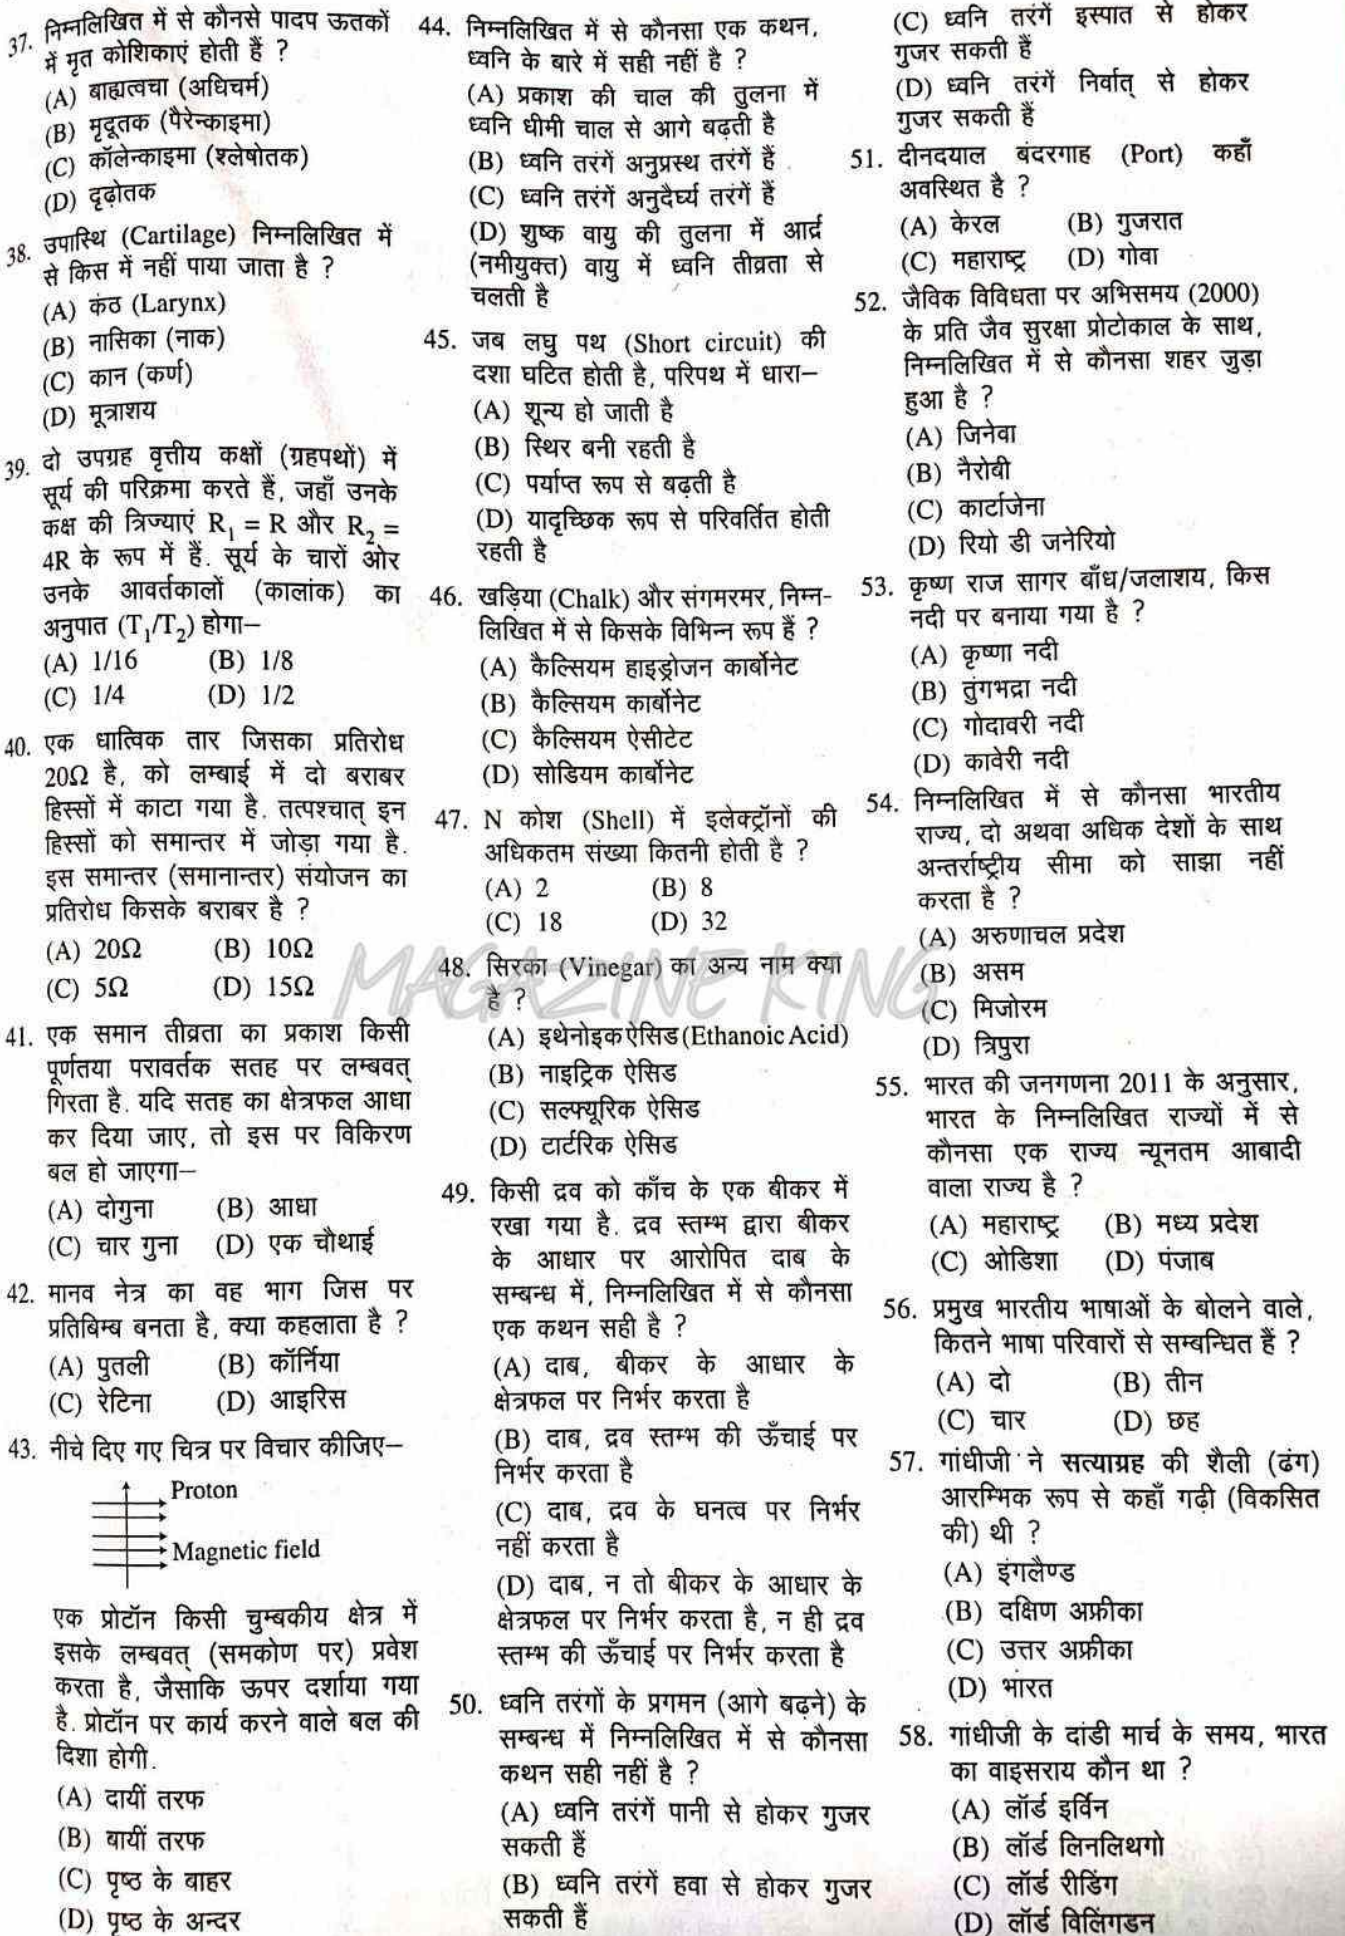 37. निम्नलिखित में से कौनसे पादप ऊतकों
में मृत कोशिकाएं होती हैं ?
(A) बाह्यत्वचा (अधिचर्म)
(B) मृदूतक (पैरेन्काइमा)
(C) कॉलेन्काइमा (श्लेषोतक)
(D) दृढ़ोतक
38. उपास्थि (Cartilage) निम्नलिखित में
से किस में नहीं पाया जाता है ?
(A) कंठ (Larynx)
(B) नासिका (नाक)
(C) कान (कर्ण)
(D) मूत्राशय
39. दो उपग्रह वृत्तीय कक्षों (ग्रहपथों) में
सूर्य की परिक्रमा करते हैं, जहाँ उनके
कक्ष की त्रिज्याएं R₁ = R और R₂ =
4R के रूप में हैं. सूर्य के चारों ओर
उनके आवर्तकालों (कालांक) का
अनुपात (T₁/T₂) होगा—
(A) 1/16 (B) 1/8
(C) 1/4 (D) 1/2
40. एक धात्विक तार जिसका प्रतिरोध
20Ω है, को लम्बाई में दो बराबर
हिस्सों में काटा गया है. तत्पश्चात् इन
हिस्सों को समान्तर में जोड़ा गया है.
इस समान्तर (समानान्तर) संयोजन का
प्रतिरोध किसके बराबर है ?
(A) 20Ω (B) 10Ω
(C) 5Ω (D) 15Ω
41. एक समान तीव्रता का प्रकाश किसी
पूर्णतया परावर्तक सतह पर लम्बवत्
गिरता है. यदि सतह का क्षेत्रफल आधा
कर दिया जाए, तो इस पर विकिरण
बल हो जाएगा—
(A) दोगुना (B) आधा
(C) चार गुना (D) एक चौथाई
42. मानव नेत्र का वह भाग जिस पर
प्रतिबिम्ब बनता है, क्या कहलाता है ?
(A) पुतली (B) कॉर्निया
(C) रेटिना (D) आइरिस
43. नीचे दिए गए चित्र पर विचार कीजिए—
Proton
Magnetic field
एक प्रोटॉन किसी चुम्बकीय क्षेत्र में
इसके लम्बवत् (समकोण पर) प्रवेश
करता है, जैसाकि ऊपर दर्शाया गया
है. प्रोटॉन पर कार्य करने वाले बल की
दिशा होगी.
(A) दायीं तरफ
(B) बायीं तरफ
(C) पृष्ठ के बाहर
(D) पृष्ठ के अन्दर
44. निम्नलिखित में से कौनसा एक कथन,
ध्वनि के बारे में सही नहीं है ?
(A) प्रकाश की चाल की तुलना में
ध्वनि धीमी चाल से आगे बढ़ती है
(B) ध्वनि तरंगें अनुप्रस्थ तरंगें हैं
(C) ध्वनि तरंगें अनुदैर्घ्य तरंगें हैं
(D) शुष्क वायु की तुलना में आर्द्र
(नमीयुक्त) वायु में ध्वनि तीव्रता से
चलती है
45. जब लघु पथ (Short circuit) की
दशा घटित होती है, परिपथ में धारा—
(A) शून्य हो जाती है
(B) स्थिर बनी रहती है
(C) पर्याप्त रूप से बढ़ती है
(D) यादृच्छिक रूप से परिवर्तित होती
रहती है
46. खड़िया (Chalk) और संगमरमर, निम्न-
लिखित में से किसके विभिन्न रूप हैं ?
(A) कैल्सियम हाइड्रोजन कार्बोनेट
(B) कैल्सियम कार्बोनेट
(C) कैल्सियम ऐसीटेट
(D) सोडियम कार्बोनेट
47. N कोश (Shell) में इलेक्ट्रॉनों की
अधिकतम संख्या कितनी होती है ?
(A) 2 (B) 8
(C) 18 (D) 32
MAGAZINE KING
48. सिरका (Vinegar) का अन्य नाम क्या
है ?
(A) इथेनोइक ऐसिड (Ethanoic Acid)
(B) नाइट्रिक ऐसिड
(C) सल्फ्यूरिक ऐसिड
(D) टार्टरिक ऐसिड
49. किसी द्रव को काँच के एक बीकर में
रखा गया है. द्रव स्तम्भ द्वारा बीकर
के आधार पर आरोपित दाब के
सम्बन्ध में, निम्नलिखित में से कौनसा
एक कथन सही है ?
(A) दाब, बीकर के आधार के
क्षेत्रफल पर निर्भर करता है
(B) दाब, द्रव स्तम्भ की ऊँचाई पर
निर्भर करता है
(C) दाब, द्रव के घनत्व पर निर्भर
नहीं करता है
(D) दाब, न तो बीकर के आधार के
क्षेत्रफल पर निर्भर करता है, न ही द्रव
स्तम्भ की ऊँचाई पर निर्भर करता है
50. ध्वनि तरंगों के प्रगमन (आगे बढ़ने) के
सम्बन्ध में निम्नलिखित में से कौनसा
कथन सही नहीं है ?
(A) ध्वनि तरंगें पानी से होकर गुजर
सकती हैं
(B) ध्वनि तरंगें हवा से होकर गुजर
सकती हैं
(C) ध्वनि तरंगें इस्पात से होकर
गुजर सकती हैं
(D) ध्वनि तरंगें निर्वात् से होकर
गुजर सकती हैं
51. दीनदयाल बंदरगाह (Port) कहाँ
अवस्थित है ?
(A) केरल (B) गुजरात
(C) महाराष्ट्र (D) गोवा
52. जैविक विविधता पर अभिसमय (2000)
के प्रति जैव सुरक्षा प्रोटोकाल के साथ,
निम्नलिखित में से कौनसा शहर जुड़ा
हुआ है ?
(A) जिनेवा
(B) नैरोबी
(C) कार्टाजेना
(D) रियो डी जनेरियो
53. कृष्ण राज सागर बाँध/जलाशय, किस
नदी पर बनाया गया है ?
(A) कृष्णा नदी
(B) तुंगभद्रा नदी
(C) गोदावरी नदी
(D) कावेरी नदी
54. निम्नलिखित में से कौनसा भारतीय
राज्य, दो अथवा अधिक देशों के साथ
अन्तर्राष्ट्रीय सीमा को साझा नहीं
करता है ?
(A) अरुणाचल प्रदेश
(B) असम
(C) मिजोरम
(D) त्रिपुरा
55. भारत की जनगणना 2011 के अनुसार,
भारत के निम्नलिखित राज्यों में से
कौनसा एक राज्य न्यूनतम आबादी
वाला राज्य है ?
(A) महाराष्ट्र (B) मध्य प्रदेश
(C) ओडिशा (D) पंजाब
56. प्रमुख भारतीय भाषाओं के बोलने वाले,
कितने भाषा परिवारों से सम्बन्धित हैं ?
(A) दो (B) तीन
(C) चार (D) छह
57. गांधीजी ने सत्याग्रह की शैली (ढंग)
आरम्भिक रूप से कहाँ गढ़ी (विकसित
की) थी ?
(A) इंगलैण्ड
(B) दक्षिण अफ्रीका
(C) उत्तर अफ्रीका
(D) भारत
58. गांधीजी के दांडी मार्च के समय, भारत
का वाइसराय कौन था ?
(A) लॉर्ड इर्विन
(B) लॉर्ड लिनलिथगो
(C) लॉर्ड रीडिंग
(D) लॉर्ड विलिंगडन